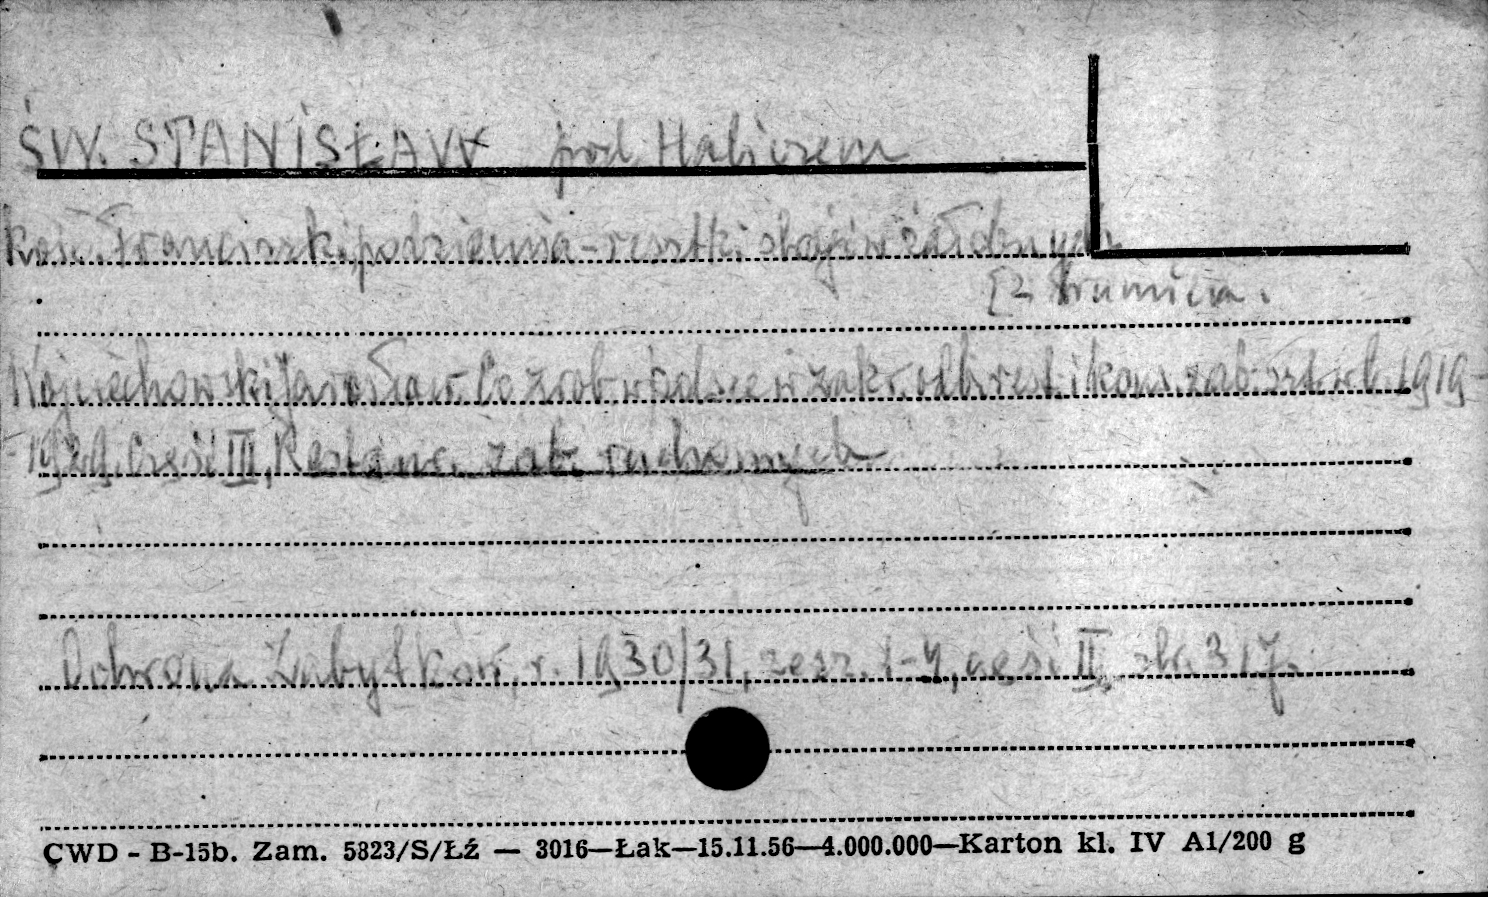 ŚW. STANISŁAW pod Haliczem
Kość. Franciszk. podziemia - resztki strojów żałobnych
[z trumien.
Wojciechowski Jarosław. Co zrob. w Polsce w zakr. odb. rest. i kons. zab. szt. w l. 1919-
-1929. Część III, Restaur. zab. ruchomych
Ochrona Zabytków, r. 1930/31, zesz. 1-4, część II, str. 317.
CWD - B-15b. Zam. 5823/S/Łź — 3016—Łak—15.11.56—4.000.000—Karton kl. IV A1/200 g